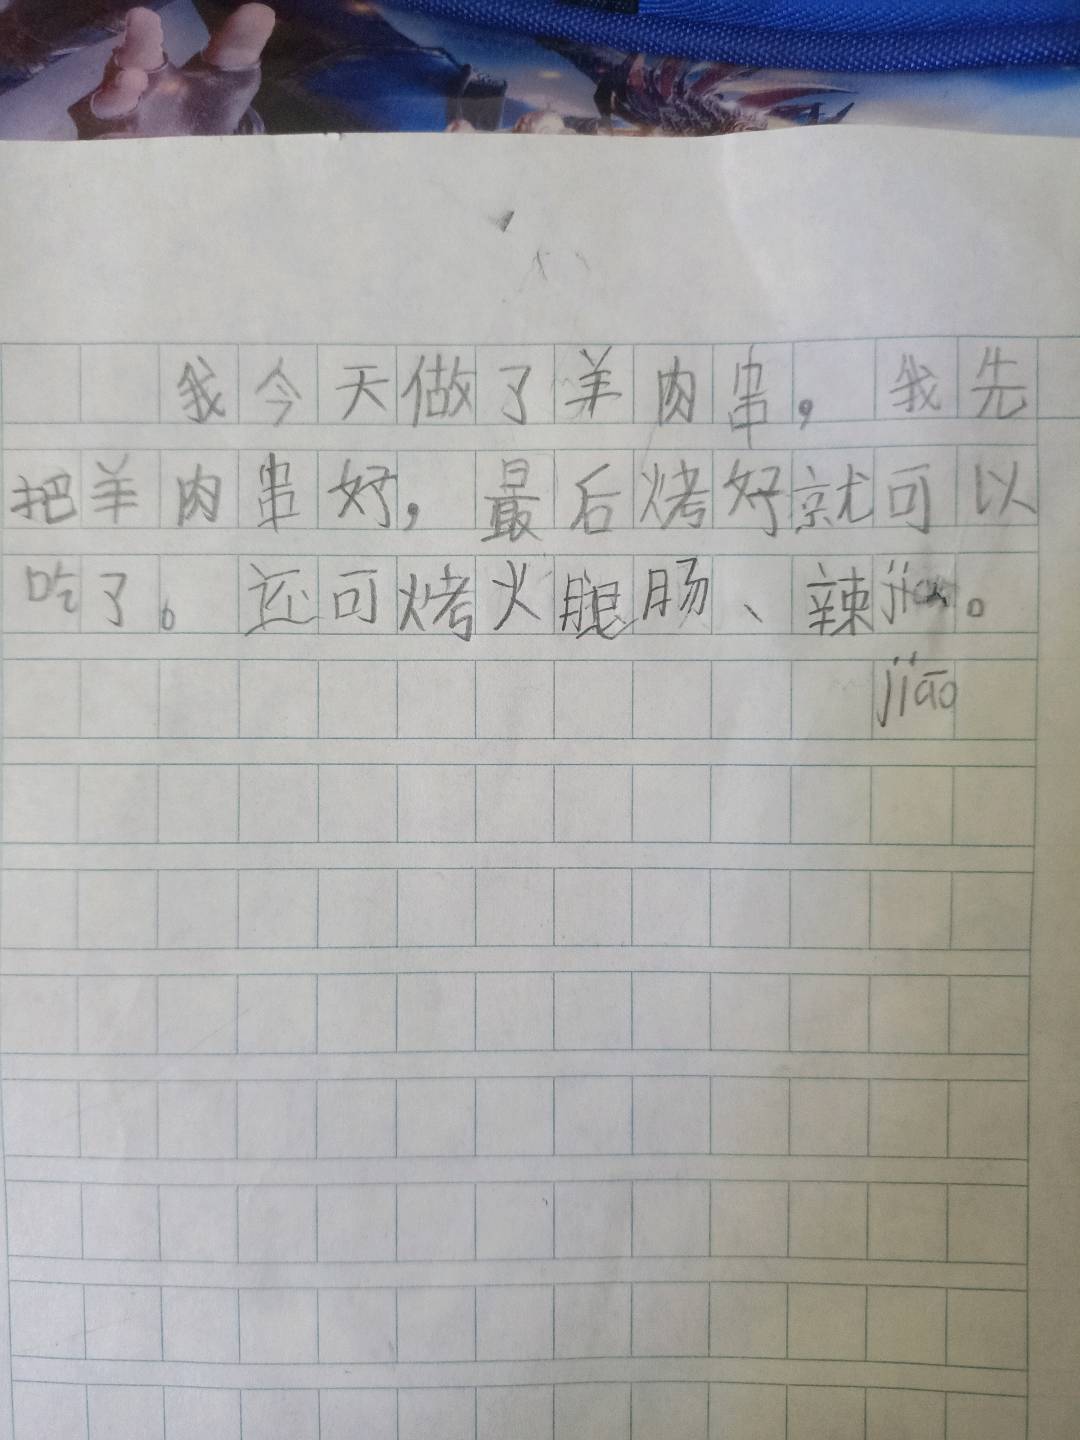 我今天做了羊肉串，我先
把羊肉串好，最后烤好就可以
吃了。还可烤火腿肠、辣jiao。
jiāo